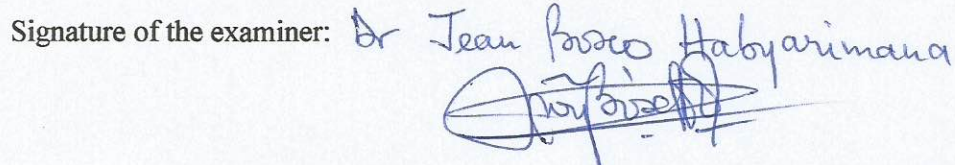 Signature of the examiner: Dr Jean Bosco Habyarimana